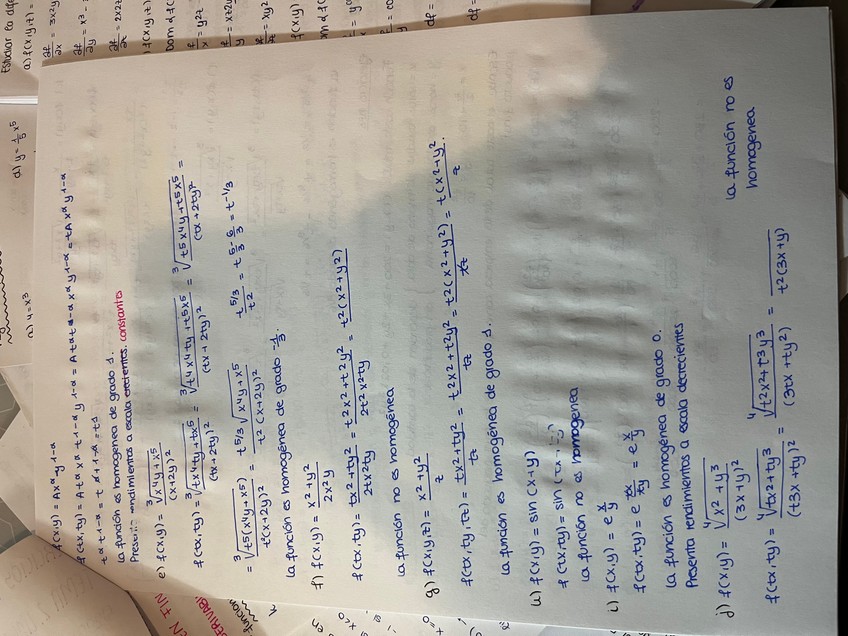 f(x,y) = Ax^α y^1-α
f(tx,ty) = A t^α x^α t^1-α y^1-α = A t^α t^1-α x^α y^1-α = tA x^α y^1-α
t^α t^1-α = t^α+1-α = t^1
La función es homogénea de grado 1.
rendimientos a escala constantes
e) f(x,y) = ∛(x^4y + x^5) / (x+2y)^2
f(tx,ty) = ∛(tx^4ty + tx^5) / (tx+2ty)^2 = ∛(t^4x^4ty + t^5x^5) / (tx+2ty)^2 = ∛(t^5x^4y + t^5x^5) / (tx+2ty)^2 =
= ∛(t^5(x^4y + x^5)) / t^2(x+2y)^2 = t^5/3 ∛(x^4y + x^5) / t^2(x+2y)^2 t^5/3 / t^2 = t^5/3 - 6/3 = t^-1/3
La función es homogénea de grado -1/3.
f) f(x,y) = x^2+y^2 / 2x^2y
f(tx,ty) = tx^2+ty^2 / 2tx^2ty = t^2x^2+t^2y^2 / 2t^2x^2ty = t^2(x^2+y^2)
La función no es homogénea
g) f(x,y,z) = x^2+y^2 / z
f(tx,ty,tz) = tx^2+ty^2 / tz = t^2x^2+t^2y^2 / tz = t^2(x^2+y^2) / tz = t(x^2+y^2) / z
La función es homogénea de grado 1.
h) f(x,y) = sin(x+y)
f(tx,ty) = sin(tx+ty)
La función no es homogénea
i) f(x,y) = e^x/y
f(tx,ty) = e^tx/ty = e^x/y
La función es homogénea de grado 0.
Presenta rendimientos a escala decrecientes
j) f(x,y) = ∜(x^2+y^3) / (3x+y)^2
f(tx,ty) = ∜(tx^2+ty^3) / (t3x+ty)^2 = ∜(t^2x^2+t^3y^3) / (3tx+ty^2) = / t^2(3x+y)
La función no es
homogénea
Estudiar la
a) f(x,y,z) =
∂f/∂x = 3x^2y
∂f/∂y = x^3
f(x,y)
a) y = x^3
d) y = 1/5 x^5
EN FIN